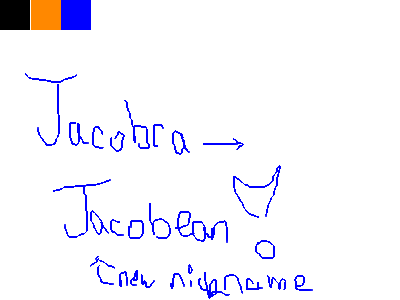 Jacobra →
Jacobean!
new nickname